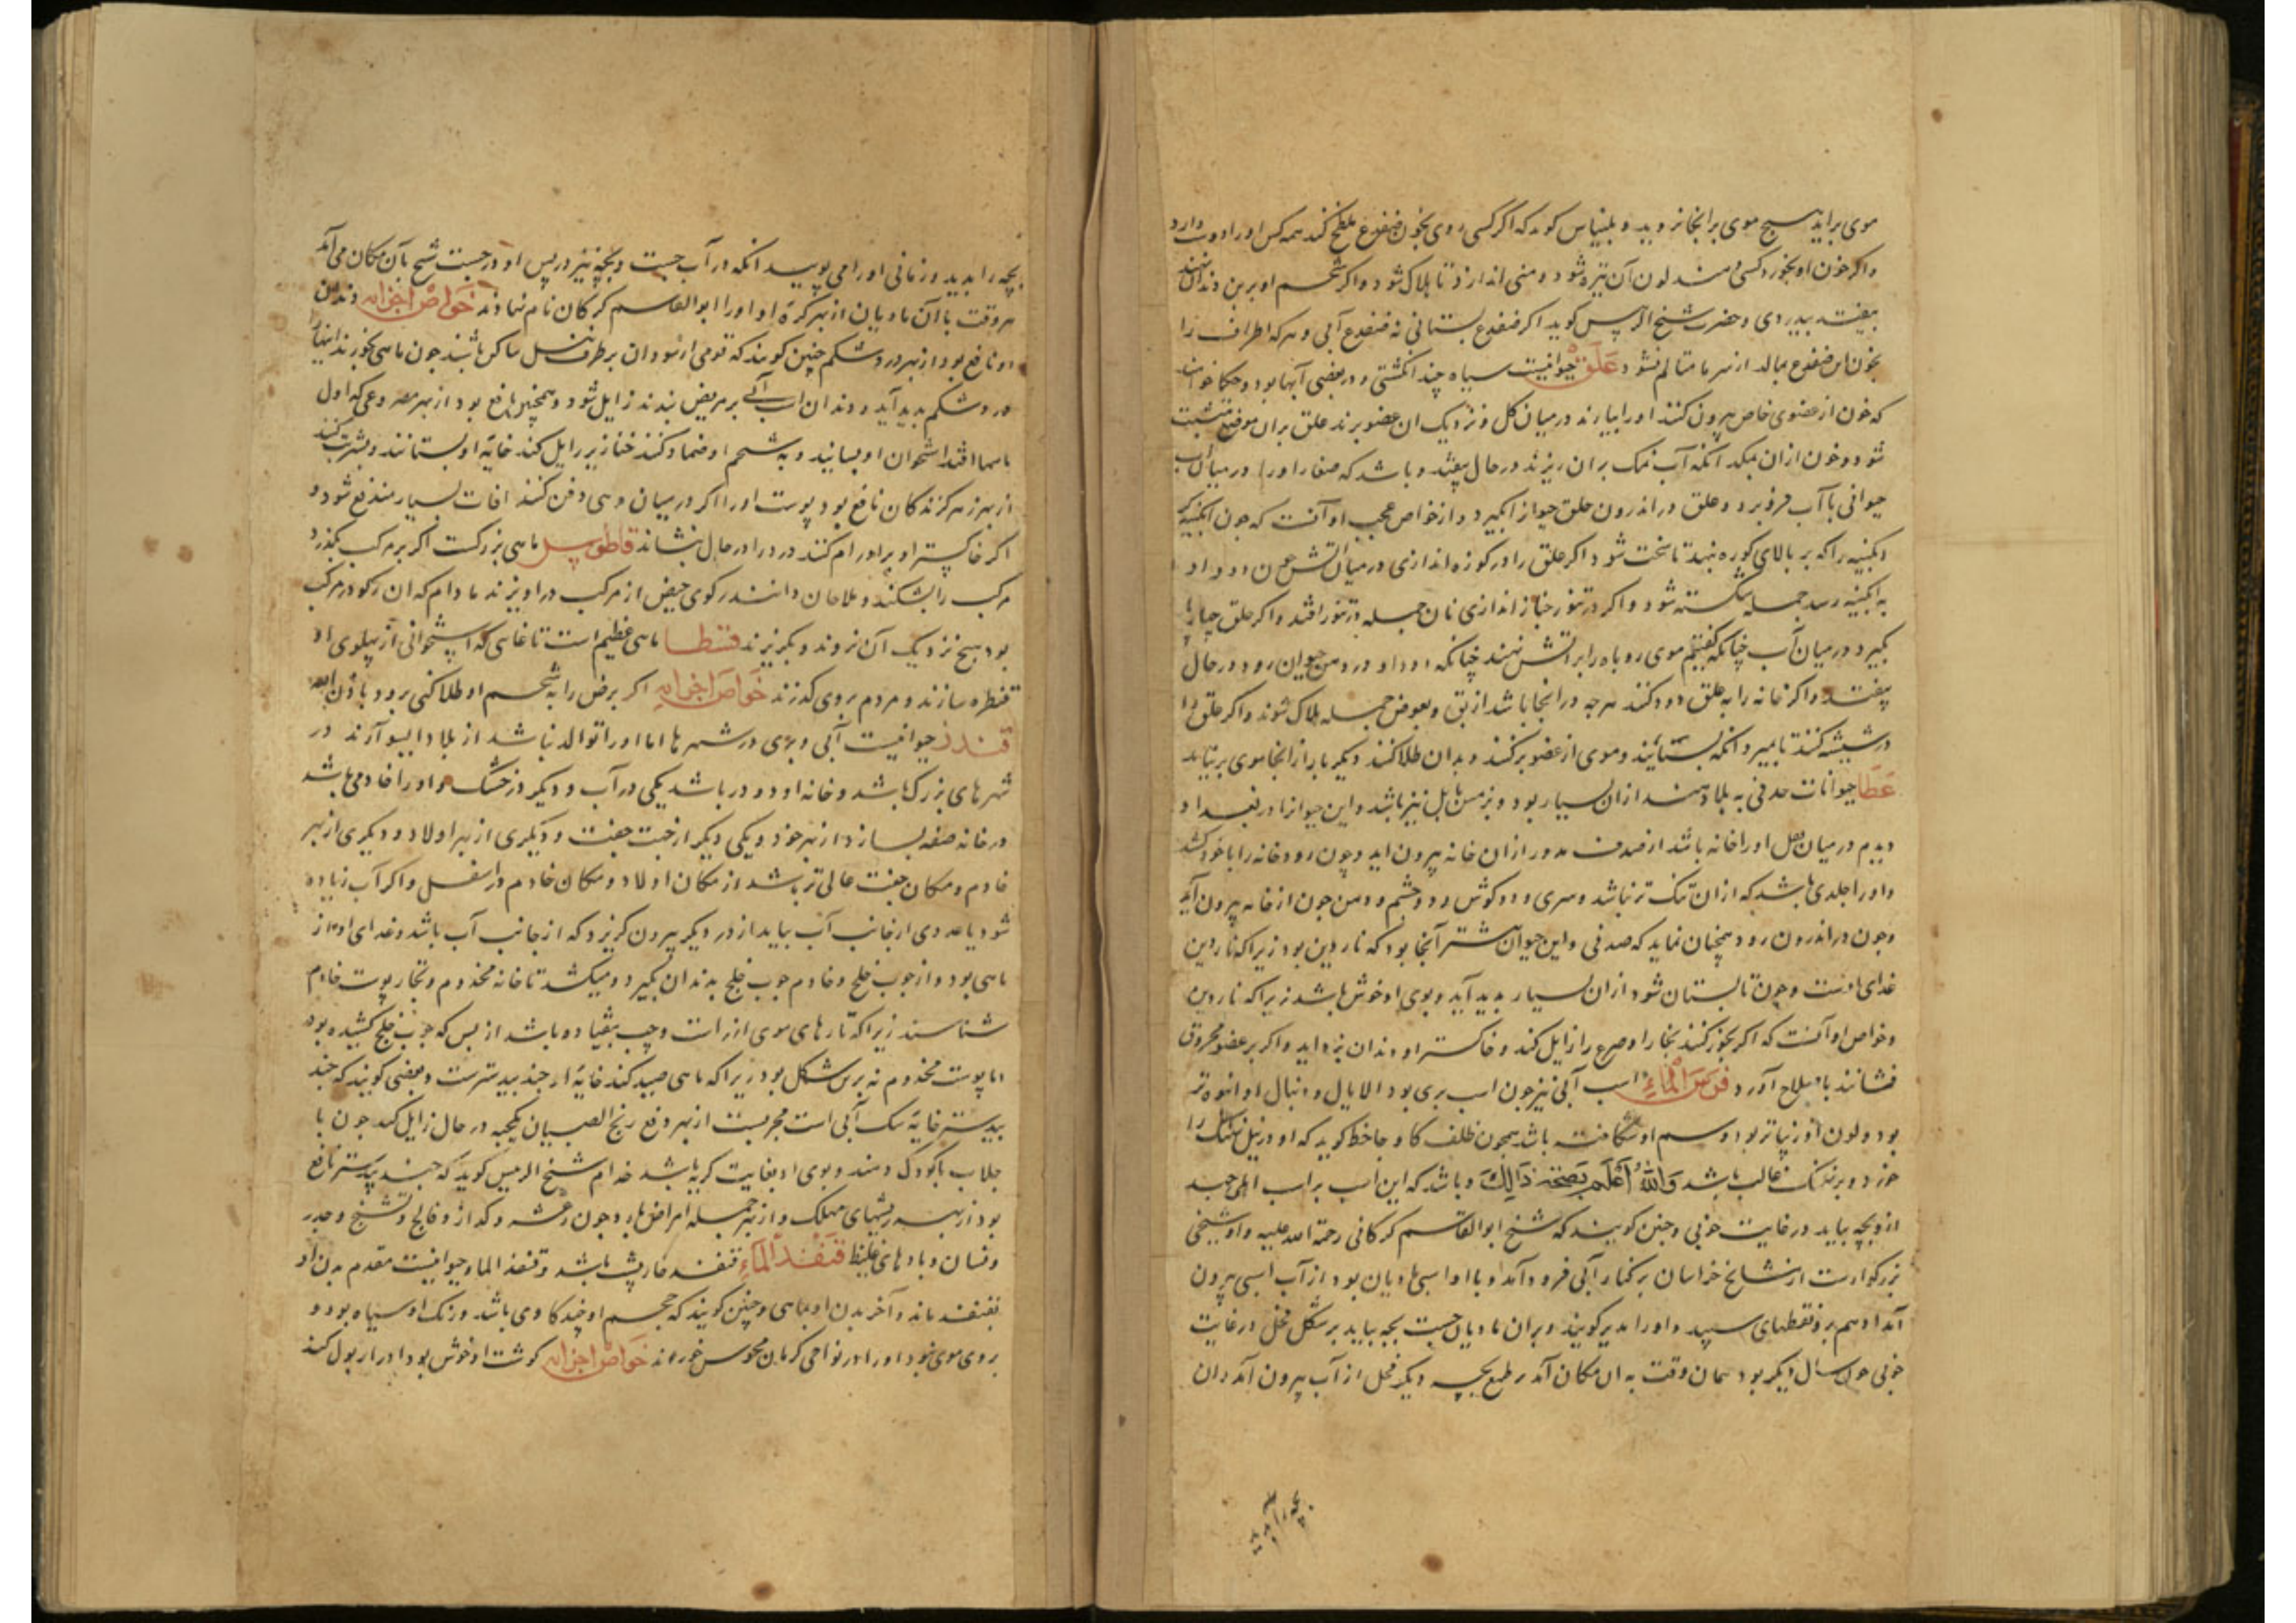 موی براید هیچ موی بر انجا نروید و بلیناس کوید که اگر کسی روی بخون ضفدع ملطخ کند همه کس او را دوست دارد
واکر خون او بخورد کسی دهند لون آن تیره شود و منی اندازد تا هلاک شود و اکر شحم او بر بن دندان نهند
بیفتد بیدردی و حضرت شیخ الرییس کوید اکر ضفدع بستانی نه ضفدع آبی و هرکه اطراف را
بخون این ضفدع بمالد از سرما متالم نشود عَلَق حیوانیست سیاه چند انکشتی و در بعضی آبها بود و حکما خواهند
که خون از عضوی خاص بیرون کنند او را بیارند در میان کل و نزدیک ان عضو برند علق بران موضع متشبث
شود و خون ازان بمکد آنکه آب نمک بران ریزند در حال بیفتد و باشد که صغار او را در میان آب
حیوانی با آب فرو برد و علق در اندرون حلق حیوان بکیرد و از خواص عجیب او آنست که چون آبکینه کر
ابکینه را که بر بالای کوره نهد تا سخت شود اکر علق را در کوزه اندازی در میان آتش چون دود او
به ابکینه رسد جمله شکسته شود و اکر در تنور خباز اندازی نان جمله در تنور افتد و اکر علق
بکیرد در میان آب چنانکه کفتیم موی روباه را بر آتش نهند چنانکه دود او در دهن حیوان رود در حال
بیفتد و اکر خانه را به علق دود کنند هرچه در انجا باشد از بق و بعوض جمله هلاک شوند و اکر علق را
در شیشه کنند تا بمیرد آنکه بستانند و موی از عضو برکنند و بدان طلا کنند دیکر بار از انجا موی بر نیاید
عَطَا حیوانات صدفی به بلاد هند ازان بسیار بود و بزمین بابل نیز باشد و این حیوان را در بغداد
دیدم در میان کل او را خانه باشد از صدف مدور ازان خانه بیرون اید و چون رود خانه را با خود کشد
و او را جلدی باشد که ازان تنک تر نباشد و سری و دو کوش و دو چشم و دهن چون از خانه بیرون آید
و چون در اندرون رود همچنان نماید که صدفی و این حیوان بیشتر آنجا بود که ناردین بود زیرا که ناردین
غذای اوست و چون تابستان شود ازان بسیار بدید آید و بوی او خوش باشد زیرا که ناردین
و خواص او آنست که اکر بخور کنند بخار او صرع را زایل کند و خاکستر او دندان بزداید و اکر بر عضو محروق
فشانند باصلاح آورد فَرَسُ الْمَاءِ اسب آبی نیز چون اسب بری بود الا یال و دنبال او انبوه تر
بود و لون او زیباتر بود و سم او شکافته باشد همچون ظلف کاو جاحظ کوید که او در نیل نهنک را
خورد و بر نهنک غالب باشد وَاللهُ أَعْلَم بِصِحَّة ذَالِكَ و باشد که این اسب بر اسب اهلی جهد
ازو بچه بیاید در غایت خوبی و چنین کویند که شیخ ابو القاسم کرکانی رحمة الله علیه و او شیخی
بزرکوارست از مشایخ خراسان بر کنار آبی فرود آمد و با او اسبی مادیان بود از آب اسبی بیرون
آمد ادهم برو نقطهای سپید و او را ابدیر کویند و بران مادیان جست بچه بیاید بر شکل فحل در غایت
خوبی چون سال دیکر بود همان وقت به ان مکان آمد بر طمع بچه دیکر فحل از آب بیرون آمد و ان
بچه را بدید
بچه را بدید و زمانی او را می بویید آنکه در آب جست و بچه نیز در پس او در جست شیخ بآن مکان می آمد
هر وقت با آن مادیان از بهر کره او و او را ابو القاسم کرکان نام نهادند خَواص اجزاءِ دندان
او نافع بود از بهر درد شکم چنین کویند که قومی از سودان بر طرف نیل ساکن باشند چون ماهی بخورند ایشانرا
درد شکم بدید آید و دندان اسب آبی بر مریض بندند زایل شود و همچنین نافع بود از بهر مصروعی که اول
ماهها افتد استخوان او بسایند و به شحم او ضماد کنند خنازیر زایل کند خایه او بستانند و بشربت کنند
از بهر زهر کزندکان نافع بود پوست او را اکر در میان دهی دفن کنند افات بسیار مندفع شود و
اکر خاکستر او بر اورام کنند درد را در حال بنشاند قاطوس ماهی بزرکست اکر بر مرکب بکذرد
مرکب را بشکند و ملاحان دانند رکوی حیض از مرکب در اویزند مادام که ان رکو در مرکب
بود هیچ نزدیک آن نروند و بکریزند قسطا ماهی عظیم است تا غایتی که استخوانی از پهلوی او
قنطره سازند و مردم بروی کذرند خَواصَ اجزاءِ اکر برص را به شحم او طلا کنی برود باذن الله
قندز حیوانیست آبی و بری در شهرها اما او را توالد نباشد از بلاد ایسو آرند در
شهرهای بزرک باشد و خانه او دو در باشد یکی در آب و دیکر در خشک و او را خادمی باشد
در خانه صفه بسازد از بهر خود و یکی دیکر از جهت جفت و دیکری از بهر اولاد و دیکری از بهر
خادم و مکان جفت عالی تر باشد از مکان اولاد و مکان خادم در اسفل و اکر آب زیاده
شود یا عدوی از جانب آب بیاید از در دیکر بیرون کریزد که از جانب آب باشد و غذای او از
ماهی بود و از چوب خلج و خادم چوب خلج بدندان بکیرد و میکشد تا خانه مخدوم و تجار پوست خادم
شناسند زیرا که تارهای موی از راست و چپ بیفتاده باشد از بس که چوب خلج کشیده بود
اما پوست مخدوم نه برین شکل بود زیرا که ماهی صید کند خایه او جند بیدسترست و بعضی کویند که جند
بیدستر خایه سک آبی است مجربست از بهر دفع رنج الصبیان یکحبه در حال زایل کند چون با
جلاب باکودک دهند و بوی او بغایت کریه باشد شیخ الرییس کوید که جند بیدستر نافع
بود از بهر ریشهای مهلک و از بهر جمله امراض بارد چون رعشه و کزاز و فالج و تشنج و خدر
و نسیان و بادهای غلیظ قُنفُذ اَلْمَاءِ قنفذ خارپشت باشد و قنفذ الماء حیوانیست مقدم بدن او
بقنفذ ماند و آخر بدن او بماهی و چنین کویند که حجم او چند کاوی باشد و رنک او سیاه بود و
بروی موی نبود او را در نواحی کرمان مجوس خورند خَواصَ اجزاءِ کوشت او خوش بود ادرار بول کند